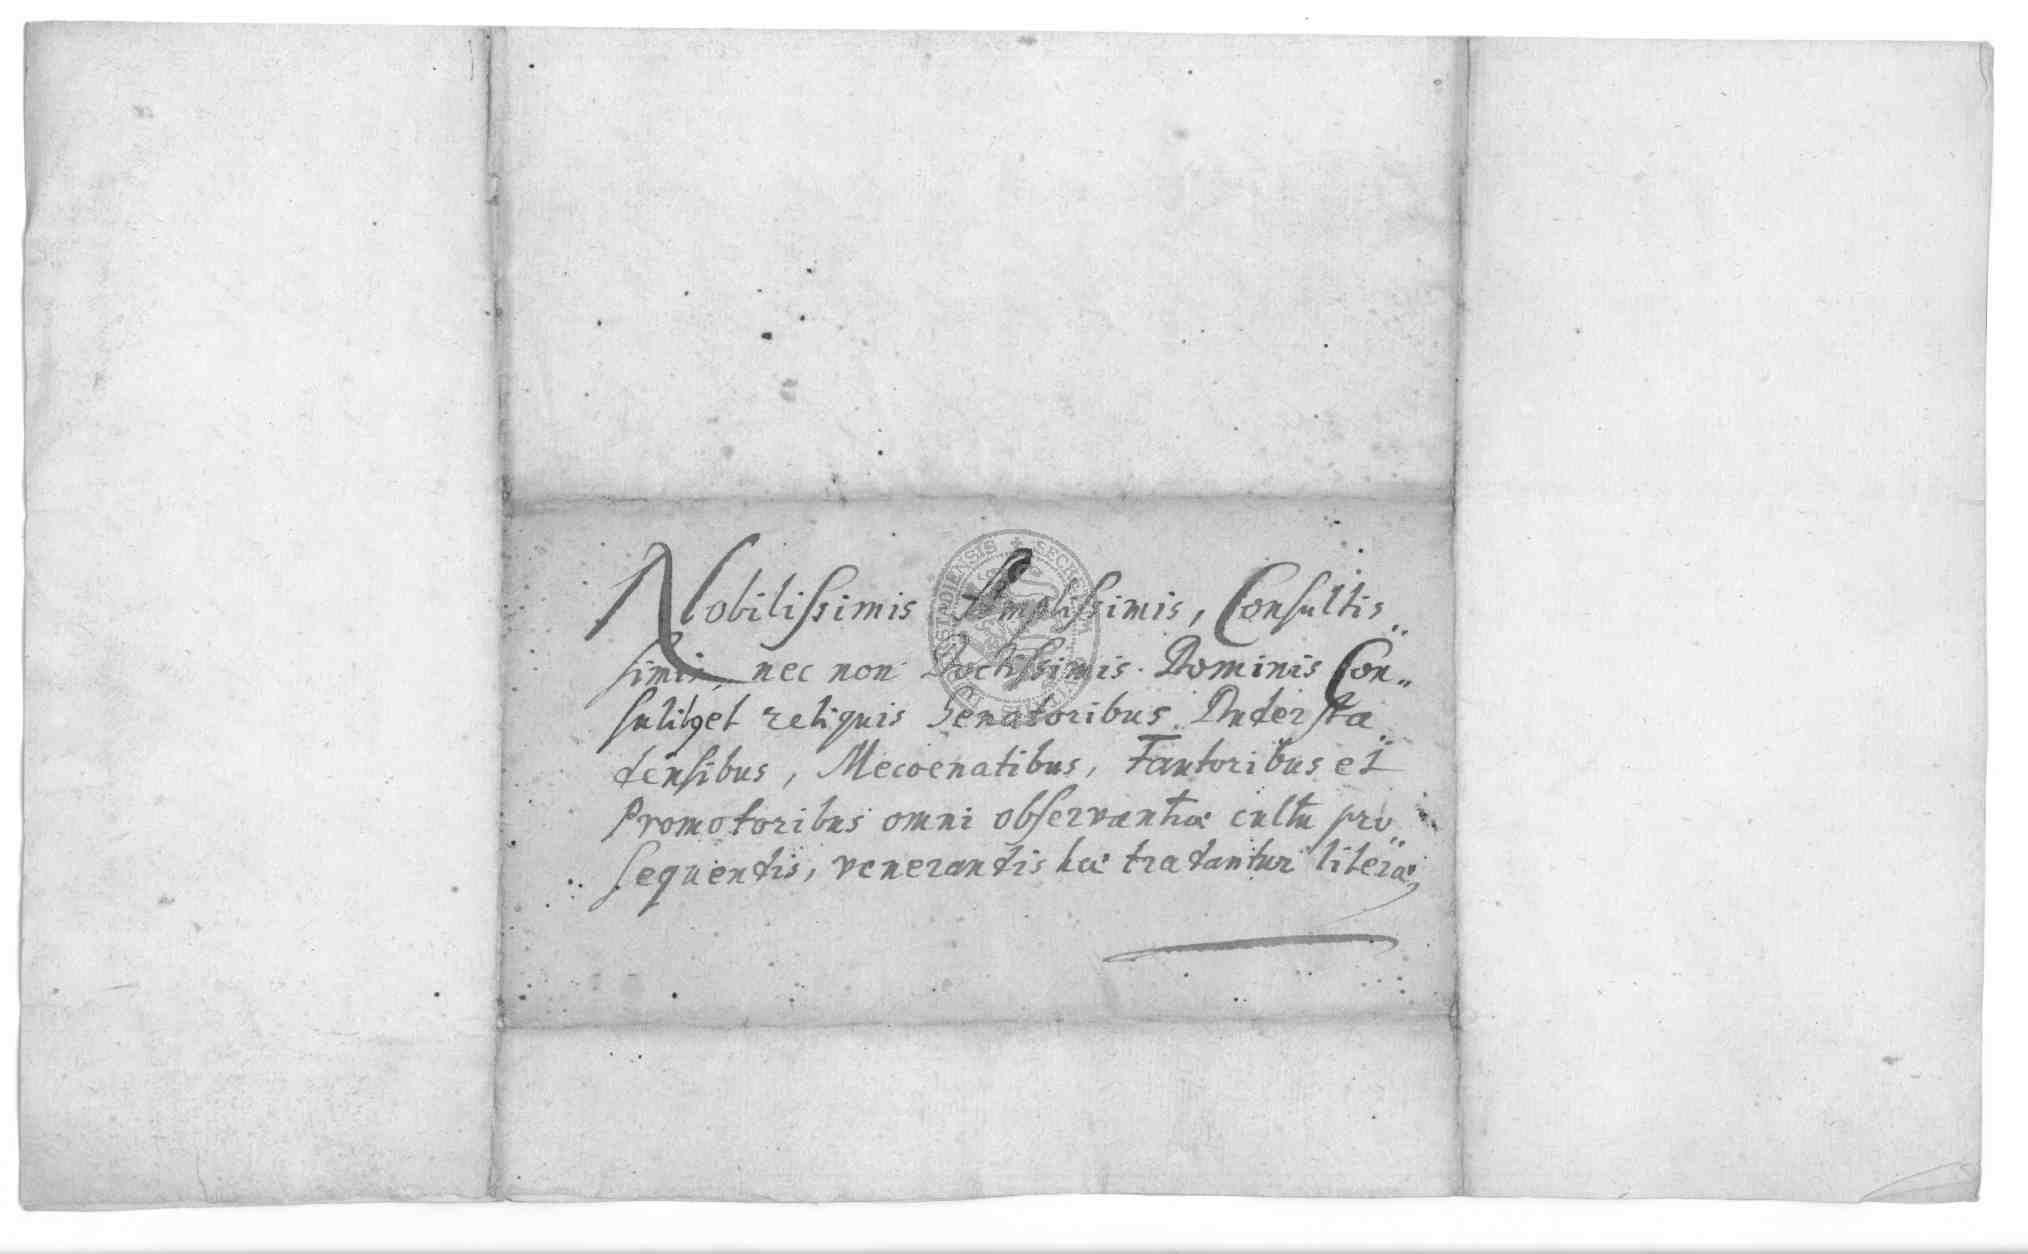 Nobilissimis Amplissimis, Consultis„
simis, nec non Doctissimis Dominis Con„
sulibꝫ et reliquis Senatoribus Dudersta„
densibus, Mecoenatibus, Fautoribus et
Promotoribus omni observantiae cultu pro„
sequendis, venerandis hae tradantur literae